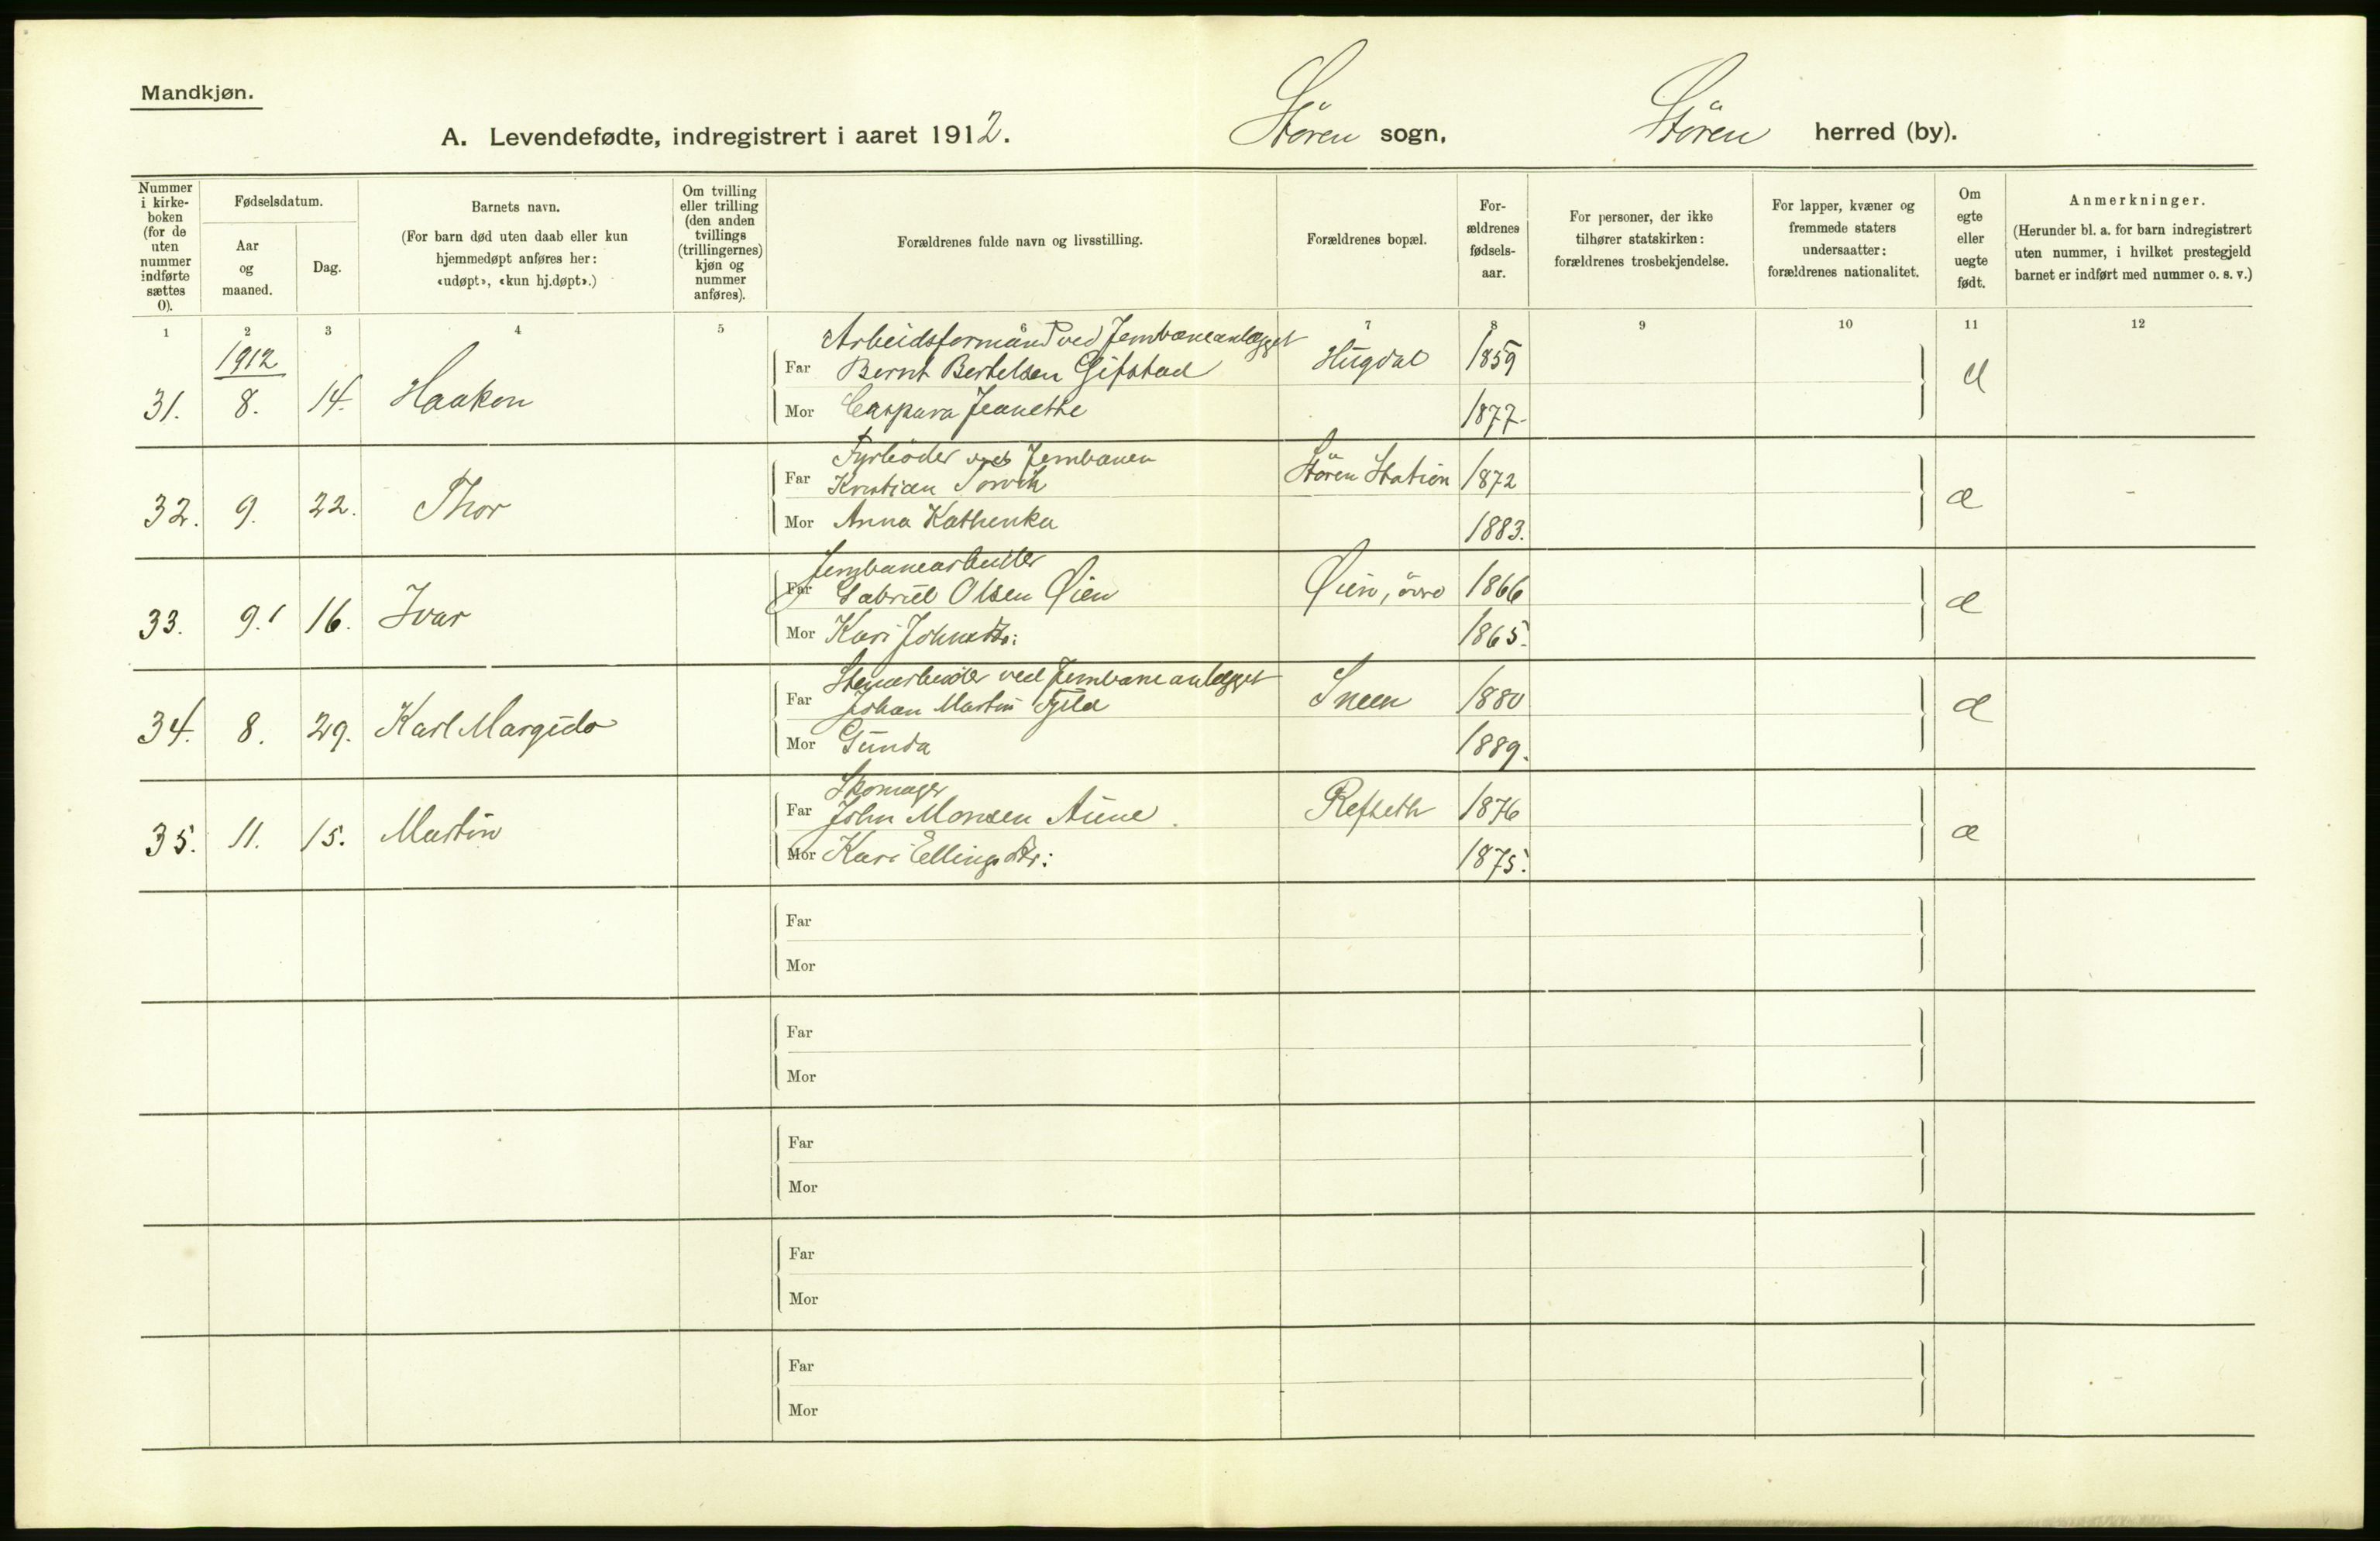 Mandkjøn.
A. Levendefødte, indregistrert i aaret 1912. Støren sogn, Støren herred (by).
Nummer i kirke-boken (for de uten nummer indførte sættes 0).
Fødselsdatum.
Aar og maaned.
Dag.
Barnets navn.
(For barn død uten daab eller kun hjemmedøpt anføres her: «udøpt», «kun hj.døpt».)
Om tvilling eller trilling (den anden tvillings (trillingernes) kjøn og nummer anføres).
Forældrenes fulde navn og livsstilling.
Forældrenes bopæl.
For-ældrenes fødsels-aar.
For personer, der ikke tilhører statskirken: forældrenes trosbekjendelse.
For lapper, kvæner og fremmede staters undersaatter: forældrenes nationalitet.
Om egte eller uegte født.
Anmerkninger.
(Herunder bl. a. for barn indregistrert uten nummer, i hvilket prestegjeld barnet er indført med nummer o. s. v.)
1 2 3 4 5 6 7 8 9 10 11 12
1912
Arbeidsformand ved Jernbaneanlægget
31. 8. 14. Haakon Far Bernt Bertelsen Gifstad Hugdal 1859 æ
Mor Caspara Jeanette 1877.
Fyrbøder ved Jernbanen
32. 9. 22. Thor Far Kristian Støren Station 1872 æ
Mor Anna Kathenka 1883.
Jernbanearbeider
33. 9. 16. Ivar Far Gabriel Olsen Øien Øien, övre 1866 æ
Mor Kari Johnsdtr: 1865.
Stenarbeider ved Jernbaneanlægget
34. 8. 29. Karl Margido Far Johan Martin Sneen 1880 æ
Mor Gunda 1889.
Skomager
35. 11. 15. Martin Far John Monsen Aune. Refseth 1876 æ
Mor Kari Ellingsdtr: 1875.
Far
Mor
Far
Mor
Far
Mor
Far
Mor
Far
Mor